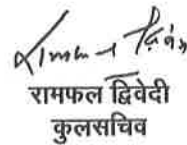 रामफल द्विवेदी
कुलसचिव